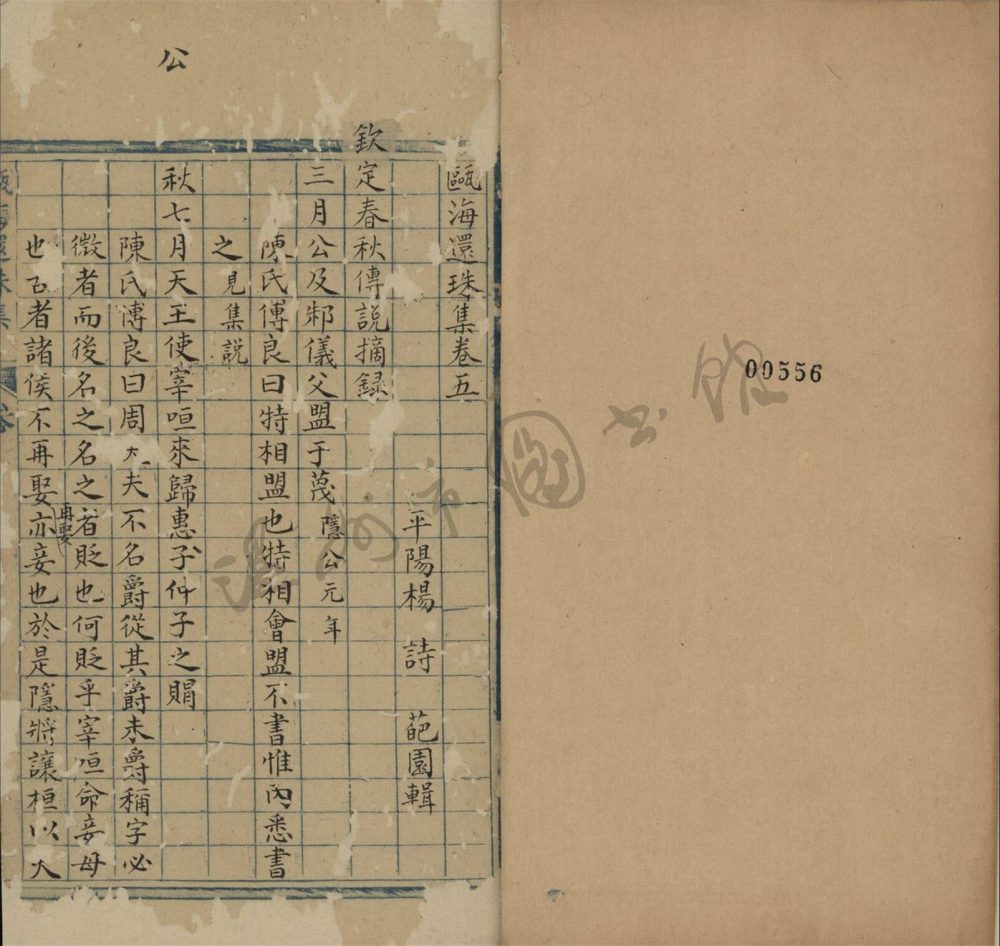 00556
甌海還珠集卷五
平陽楊 詩 葩園輯
欽定春秋傳說摘録
三月公及邾儀父盟于蔑隱公元年
陳氏傅良曰特相盟也特相會盟不書惟內悉書
之見集說
秋七月天王使宰咺來歸惠子仲子之賵
陳氏傅良曰周大夫不名爵從其爵未爵稱字必
微者而後名之名之者貶也何貶乎宰咺命妾母
也古者諸侯不再娶
再娶
亦妾也於是隱將讓桓以
公
溫州市圖書館